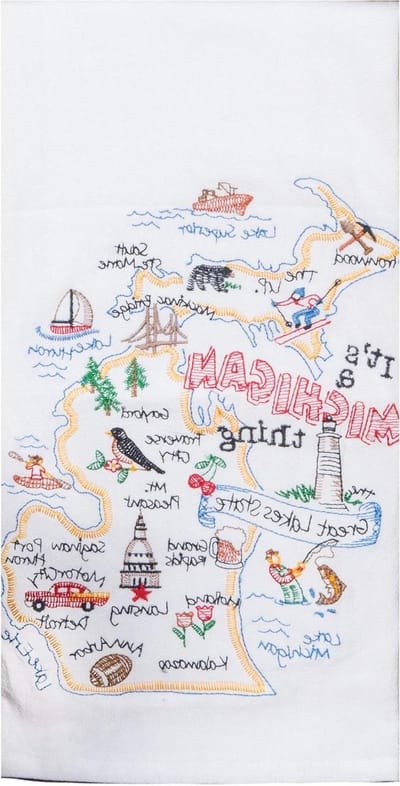 Lake Superior
Sault
Ste Marie
Ironwood
The U.P.
Mackinac Bridge
Lake Huron
It's
a
MICHIGAN
thing
Gaylord
Traverse
City
Mt.
Pleasant
the
Great Lakes State
Grand
Rapids
Saginaw
Port
Huron
Motor City
Lansing
Holland
Detroit
Lake
Michigan
Ann Arbor
Kalamazoo
Lake Erie